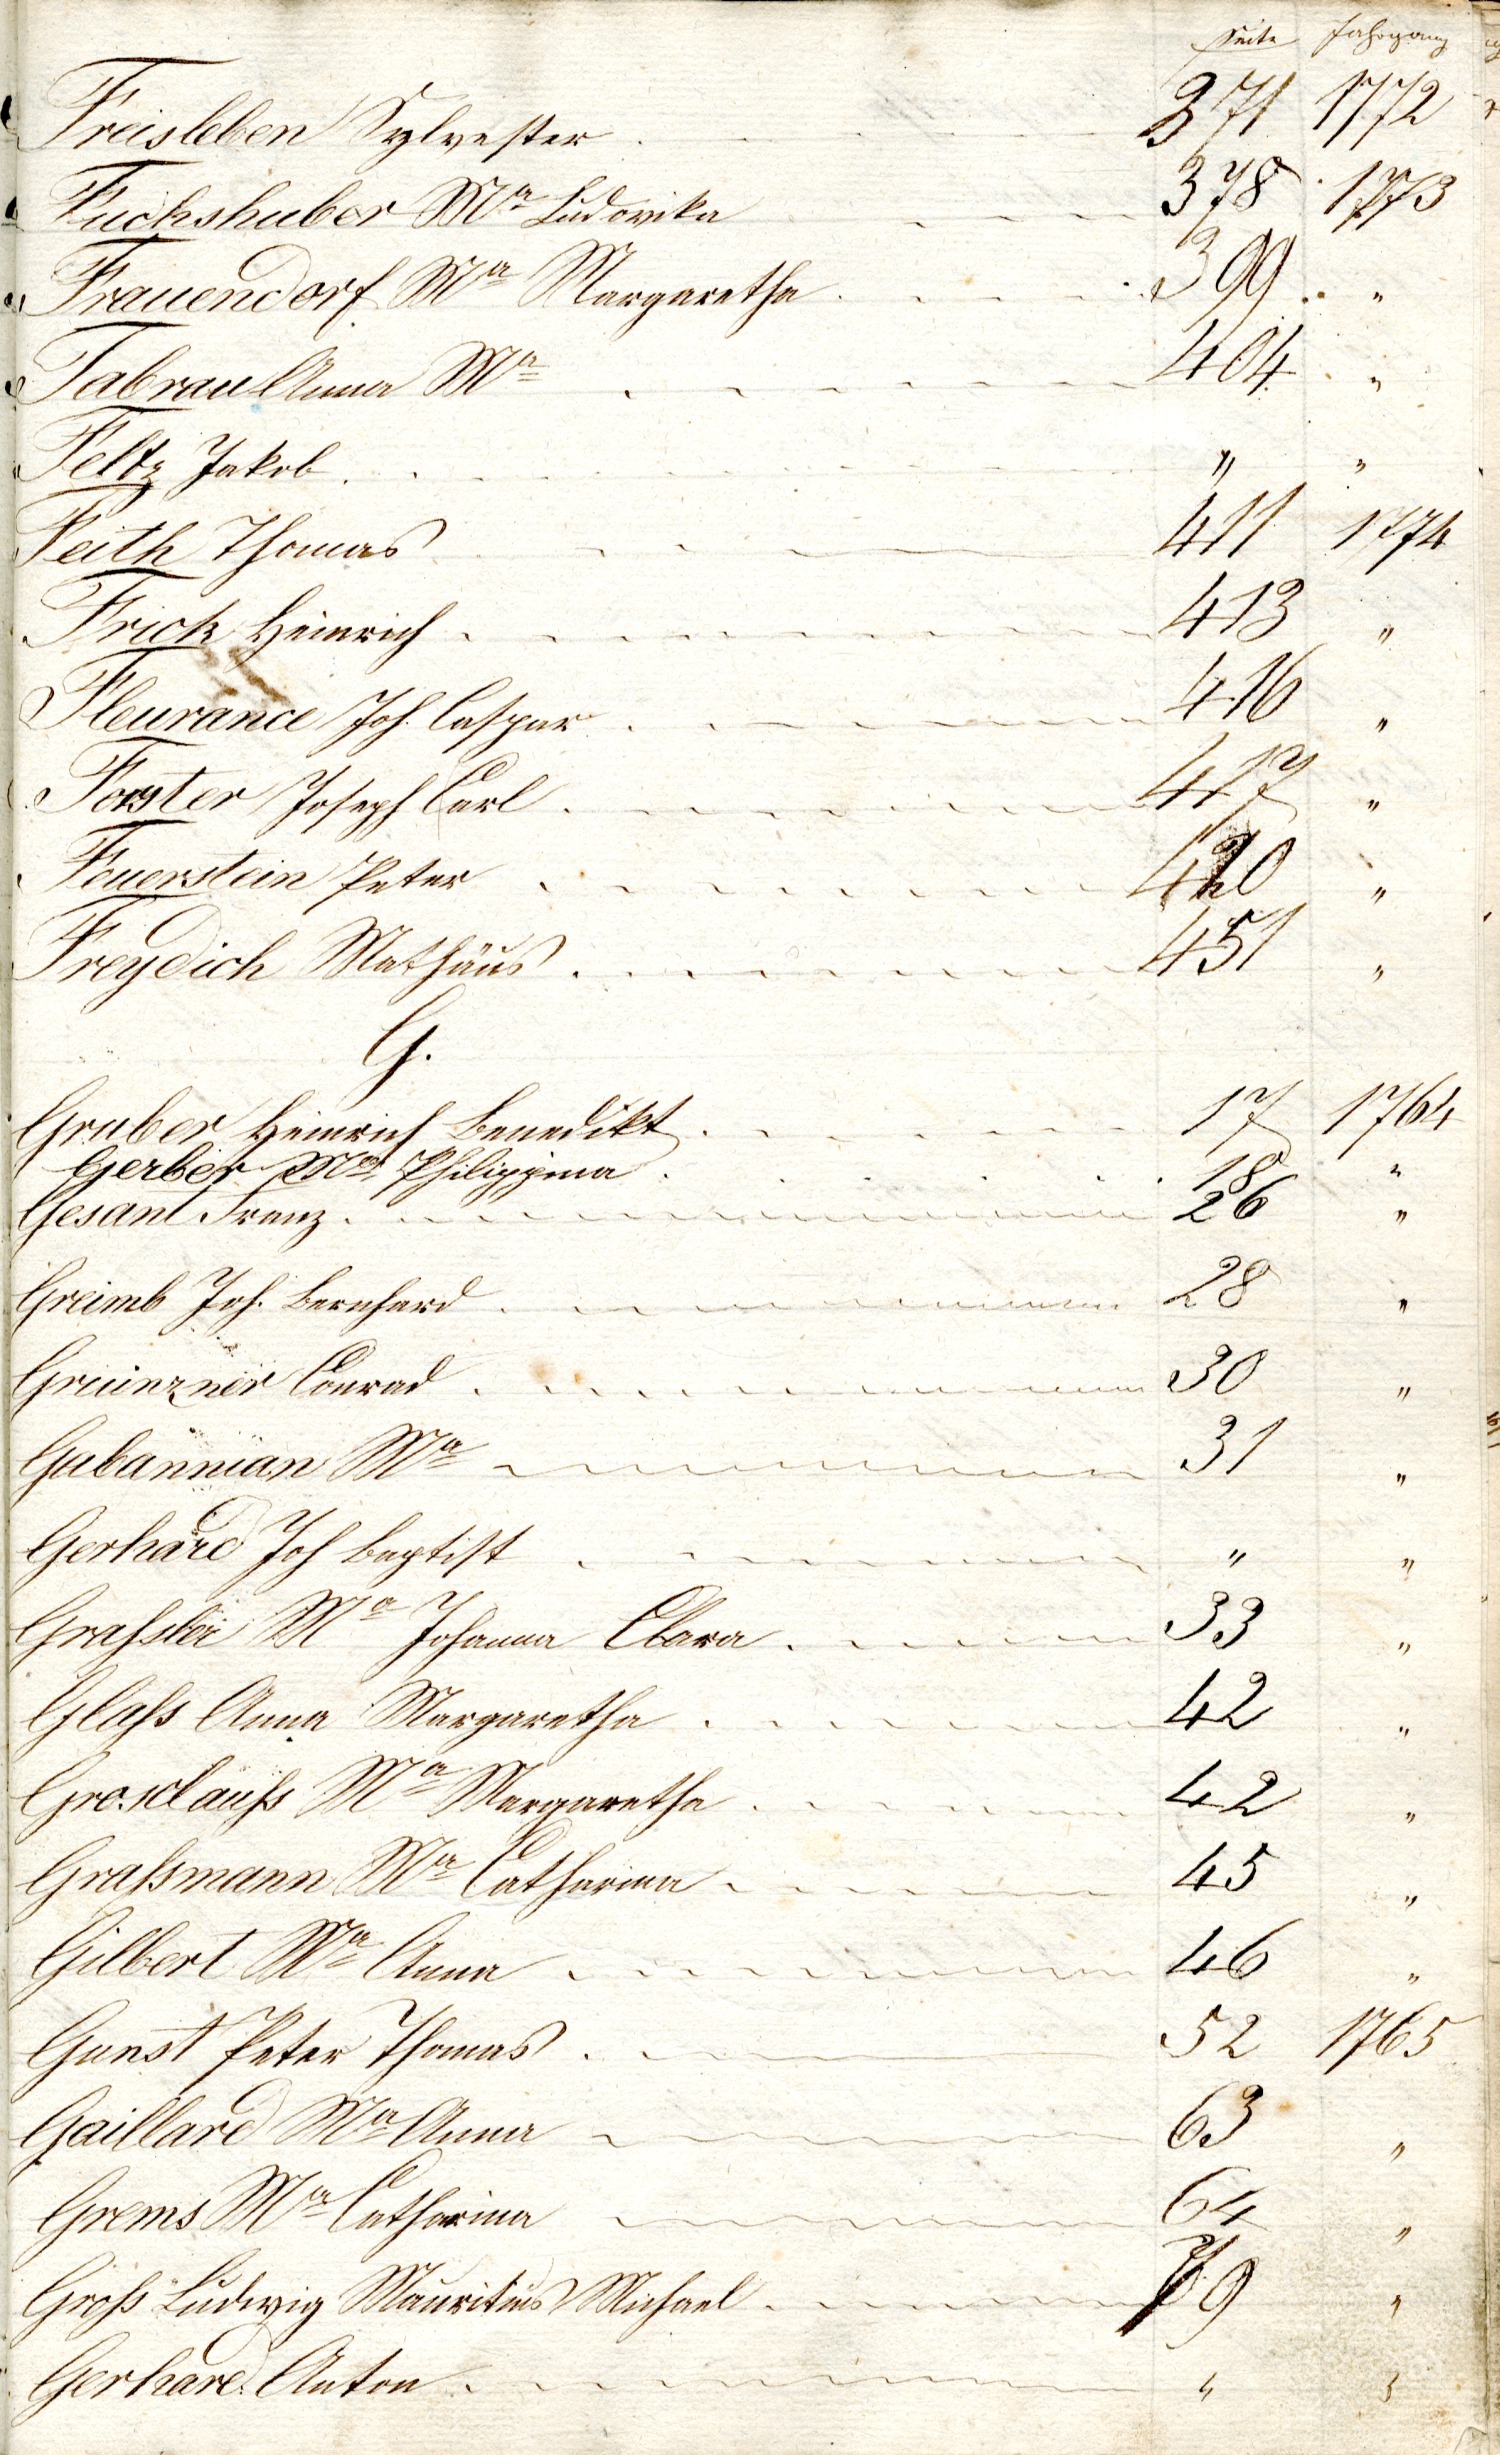 Seite Jahrgang
Freisleben Sylvester . 371 1772
Fuchshuber Ma Ludovika 378 1773
Frauendorf Ma Margaretha . 399 "
Fabrau Anna Ma 404 "
Feltz Jakob . " "
Feith Thomas 411 1774
Frick Heinrich . 413 "
Fleurance Joh. Caspar . 416 "
Forster Joseph Carl . 417 "
Feuerstein Peter 420 "
Freydich Mathäus . 451 "
G.
Gruber Heinrich Benedikt . 17 1764
Gerber Ma Philippina . 18 "
Gesant Franz . 26 "
Greimb Joh. Bernhard . 28 "
Conrad . 30 "
Gabannian Ma 31 "
Gerhard Joh Baptist " "
Ma Johanna Clara . 33 "
Glaß Anna Margaretha . 42 "
Grosclauß Ma Margaretha . 42 "
Graßmann Ma Catharina . 45 "
Gilbert Ma Anna . 46 "
Gunst Peter Thomas . 52 1765
Gaillard Ma Anna 63 "
Grems Ma Catharina 64 "
Groß Ludwig Mauritius Michael . 79 "
Gerhard Anton . " "